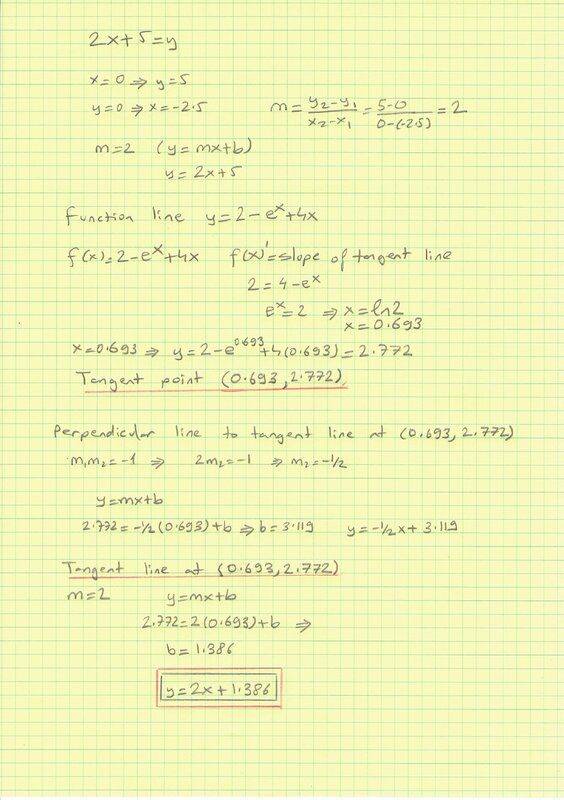 2x+5=y
x=0 ⇒ y=5
y=0 ⇒ x=-2.5 m=y₂-y₁/x₂-x₁=5-0/0-(-2.5)=2
m=2 (y=mx+b)
y=2x+5
function line y=2-eˣ+4x
f(x)=2-eˣ+4x f(x)'=slope of tangent line
2=4-eˣ
eˣ=2 ⇒ x=ln2
x=0.693
x=0.693 ⇒ y=2-e^0.693+4(0.693)=2.772
Tangent point (0.693,2.772)
Perpendicular line to tangent line at (0.693,2.772)
m₁m₂=-1 ⇒ 2m₂=-1 ⇒ m₂=-1/2
y=mx+b
2.772=-1/2(0.693)+b ⇒ b=3.119 y=-1/2x+3.119
Tangent line at (0.693,2.772)
m=2 y=mx+b
2.772=2(0.693)+b ⇒
b=1.386
y=2x+1.386